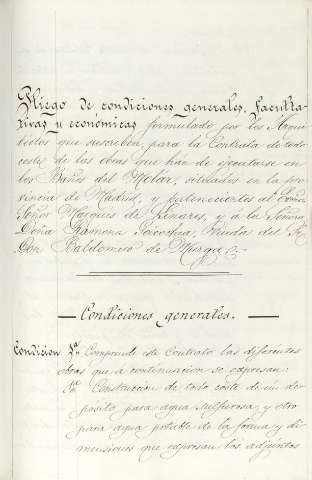 Pliego de condiciones generales, faculta-
tivas y económicas formulado por los Arqui-
tectos que suscriben, para la Contrata de todo
coste, de las obras que han de ejecutarse en
los Baños del Molar, situados en la pro-
vincia de Madrid, y pertenecientes al Exmo
Señor Marques de Linares, y á la Señora
Doña Ramona Goicochea, Viuda del Sr
Don Baldomero de Murga
Condiciones generales.
Condicion 1ª Comprende esta Contrata las diferentes
obras que á continuacion se expresan:
1ª Construccion de todo coste de un de-
pósito para agua sulfurosa, y otro
para agua potable de la forma y di-
mensiones que expresan los adjuntos